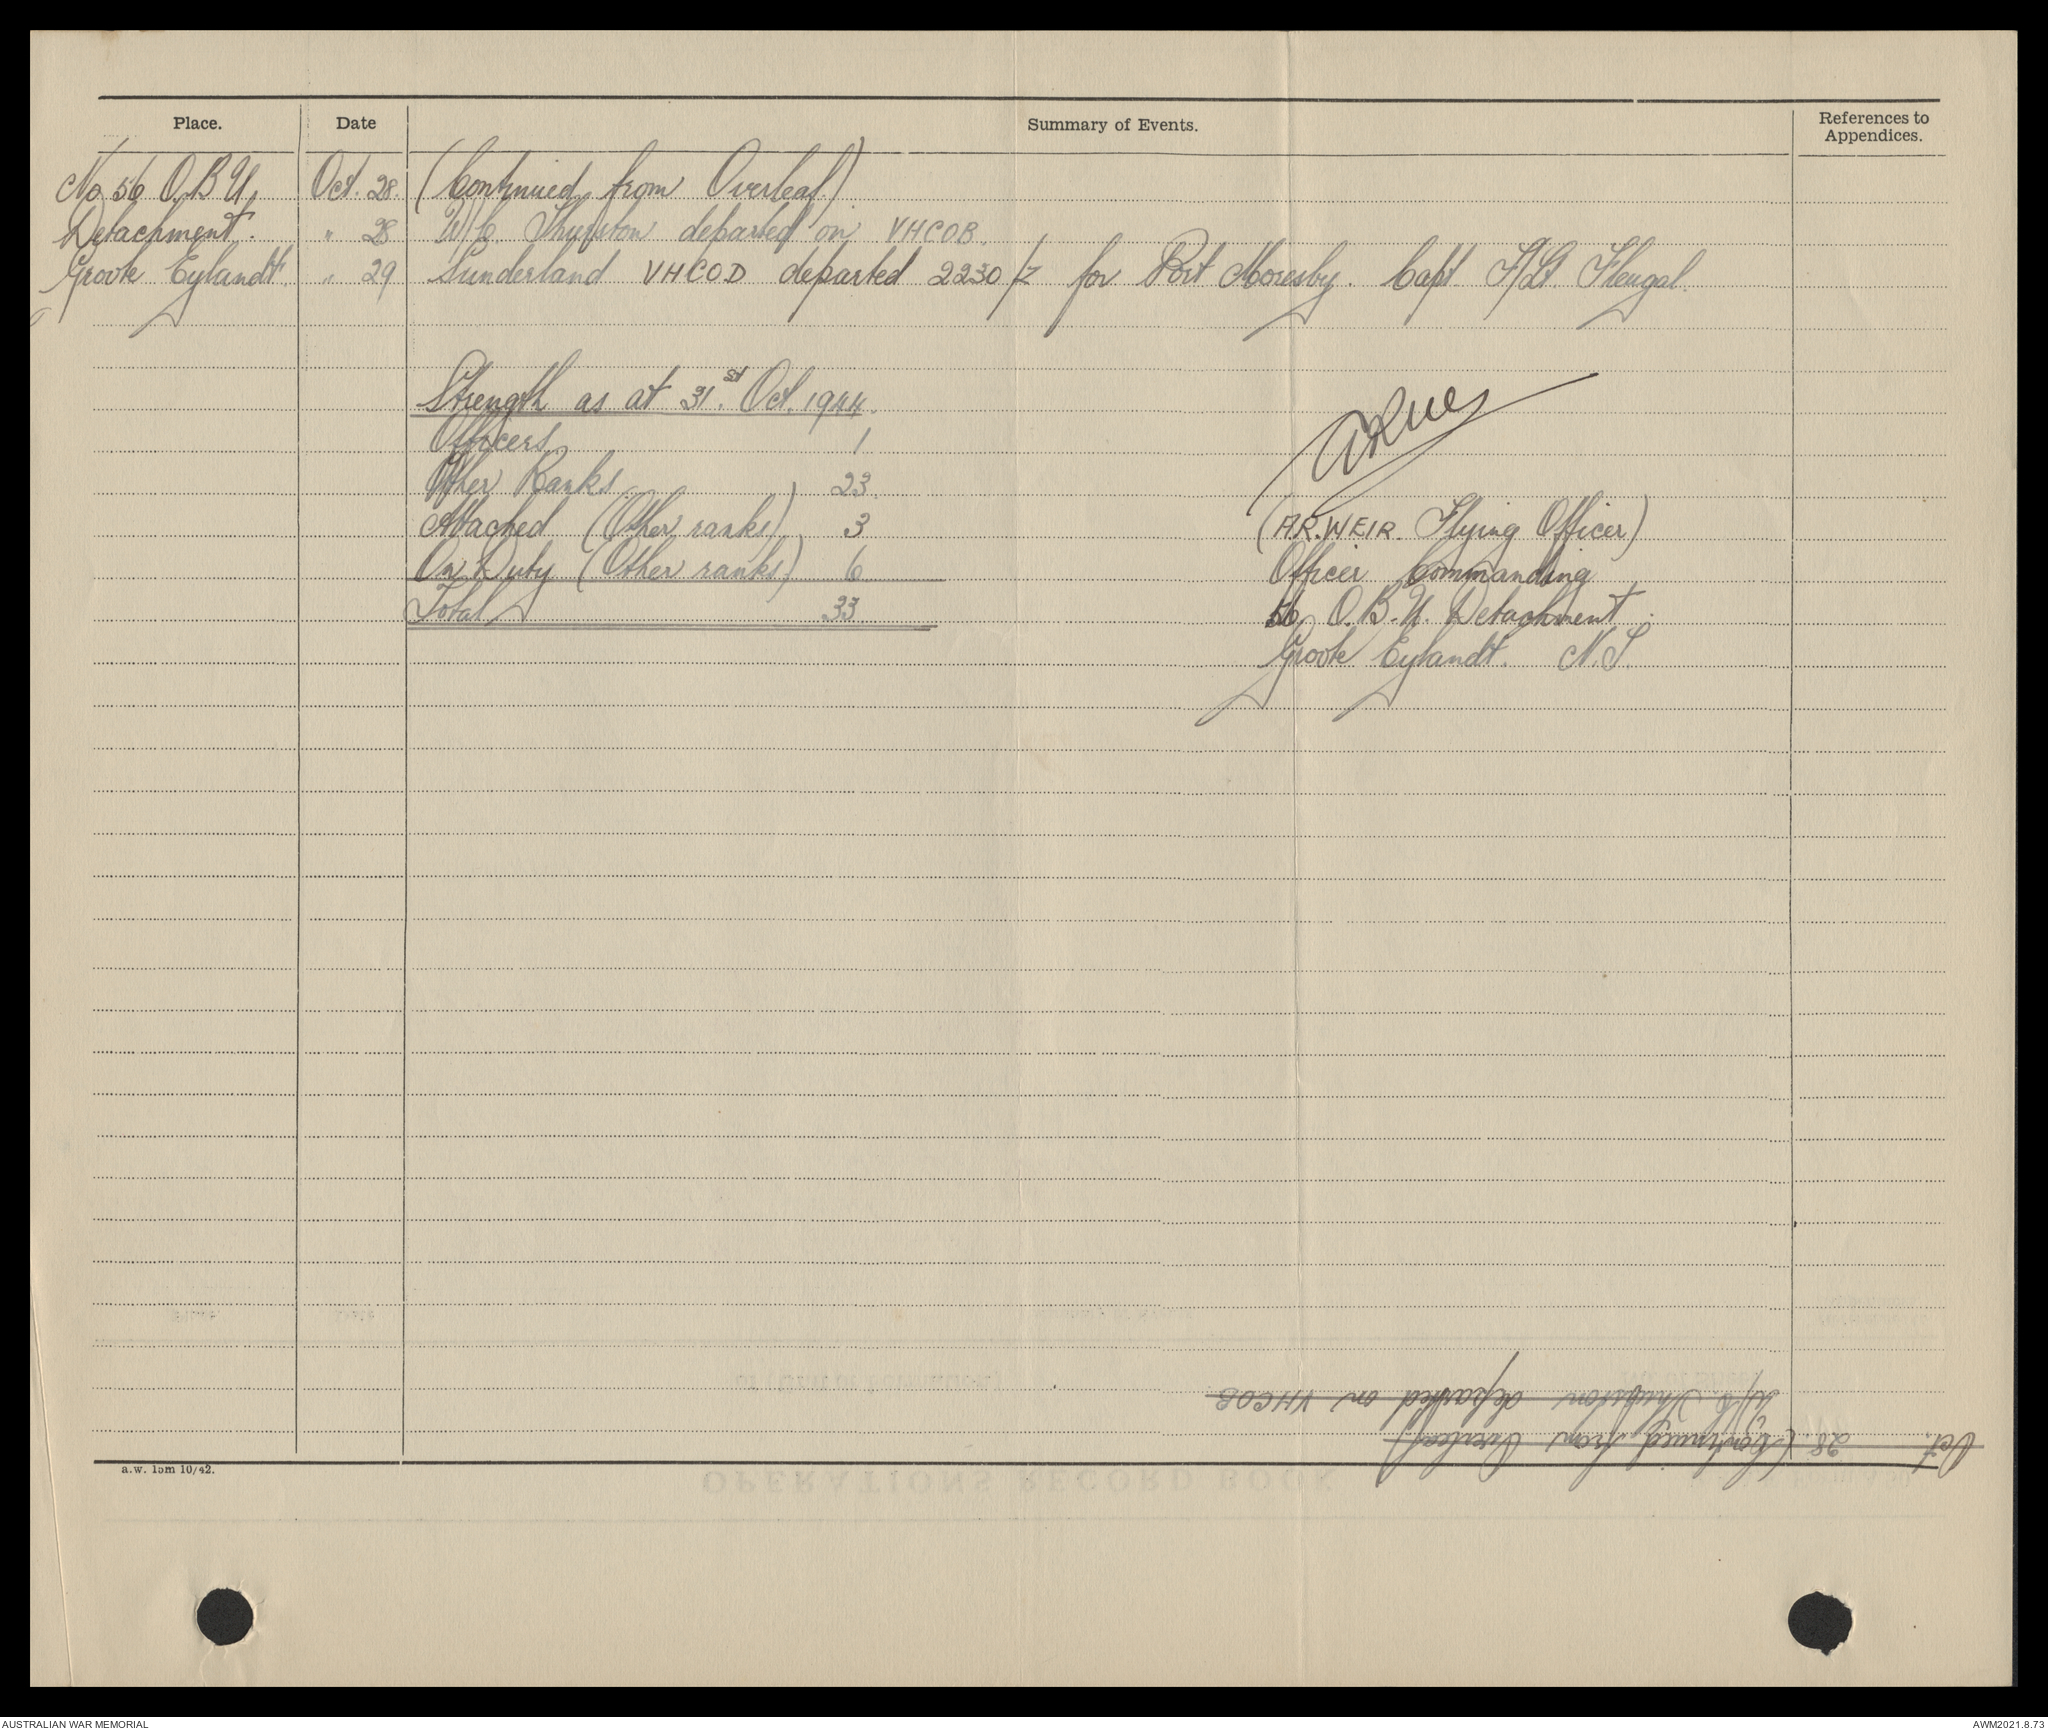 Place. Date Summary of Events. References to Appendices.
No 56 O.B.U. Oct. 28. (Continued from Overleaf)
Detachment. " 28 W/C. Thurston departed on VHCOB.
Groote Eylandt. " 29 Sunderland VHCOD departed 2230/Z for Port Moresby. Capt. F/Lt. Flengal.
Strength as at 31st. Oct. 1944.
Officers 1
Other Ranks 23.
Attached (Other ranks) 3
On Duty (Other ranks) 6
Total 33
(A.R. WEIR. Flying Officer)
Officer Commanding
56 O.B.U. Detachment.
Groote Eylandt. N.T.
Oct. 28. (Continued from Overleaf)
W/C. Thurston departed on VHCOB
a.w. 15m 10/42.
OPERATIONS RECORD BOOK
AUSTRALIAN WAR MEMORIAL
AWM2021.8.73